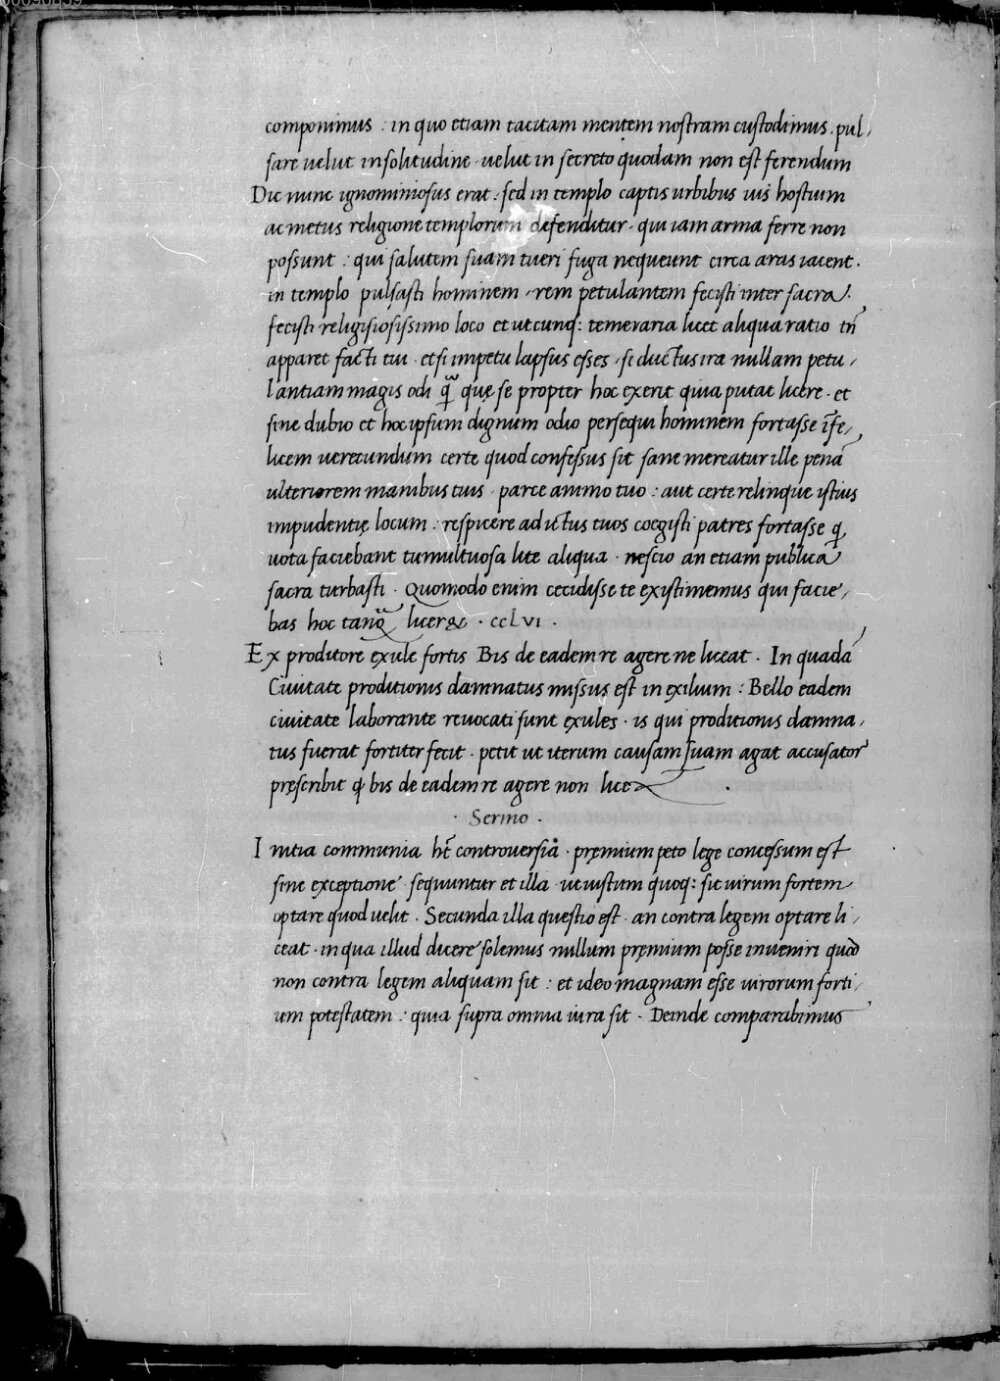 componimus : in quo etiam tacitam mentem nostram custodimus . pul/
sare uelut insolitudine · uelut in secreto quodam non est ferendum
Dic nunc ignominiosus erat : sed in templo captis urbibus uis hostium
ac metus religione templorum defenditur · qui iam arma ferre non
possunt : qui salutem suam tueri fuga nequeunt circa aras iacent .
in templo pulsasti hominem · rem petulantem fecisti inter sacra .
fecisti religisiosissimo loco et utcunq: temeraria licet aliqua ratio tn̄
apparet facti tui · et si impetu lapsus esses · si ductus ira nullam petu /
lantiam magis odi q̄ quę se propter hoc exerit quia putat licere · et
sine dubio et hoc ipsum dignum odio persequi hominem fortasse īfe/
licem uerecundum certe quod confessus sit sane mereatur ille penā
ulteriorem manibus tuis · parce animo tuo : aut certe relinque istius
impudentię locum : respicere ad ictus tuos coegisti patres fortasse q
uota faciebant tumultuosa lite aliqua · nescio an etiam publica
sacra turbasti · Quomodo enim cecidisse te existimemus qui facie /
bas hoc tanq̄ licer& · ccLvi .
Ex proditore exule fortis Bis de eadem re agere ne liceat . In quadā
Ciuitate proditionis damnatus missus est in exilium : Bello eadem
ciuitate laborante reuocati sunt exules · is qui proditionis damna /
tus fuerat fortiter fecit · petit ut iterum causam suam agat accusator
pręscribit q bis de eadem re agere non lice& .
· Sermo .
Initia communia h̄t controuersiā · pręmium peto lege concessum est
sine exceptione sequuntur et illa · ut iustum quoq: sit uirum fortem
optare quod uelit . Secunda illa questio est · an contra legem optare li /
ceat · in qua illud dicere solemus nullum pręmium posse inueniri quod
non contra legem aliquam sit : et ideo magnam esse uirorum forti /
um potestatem : quia supra omnia iura sit . Deinde comparabimus